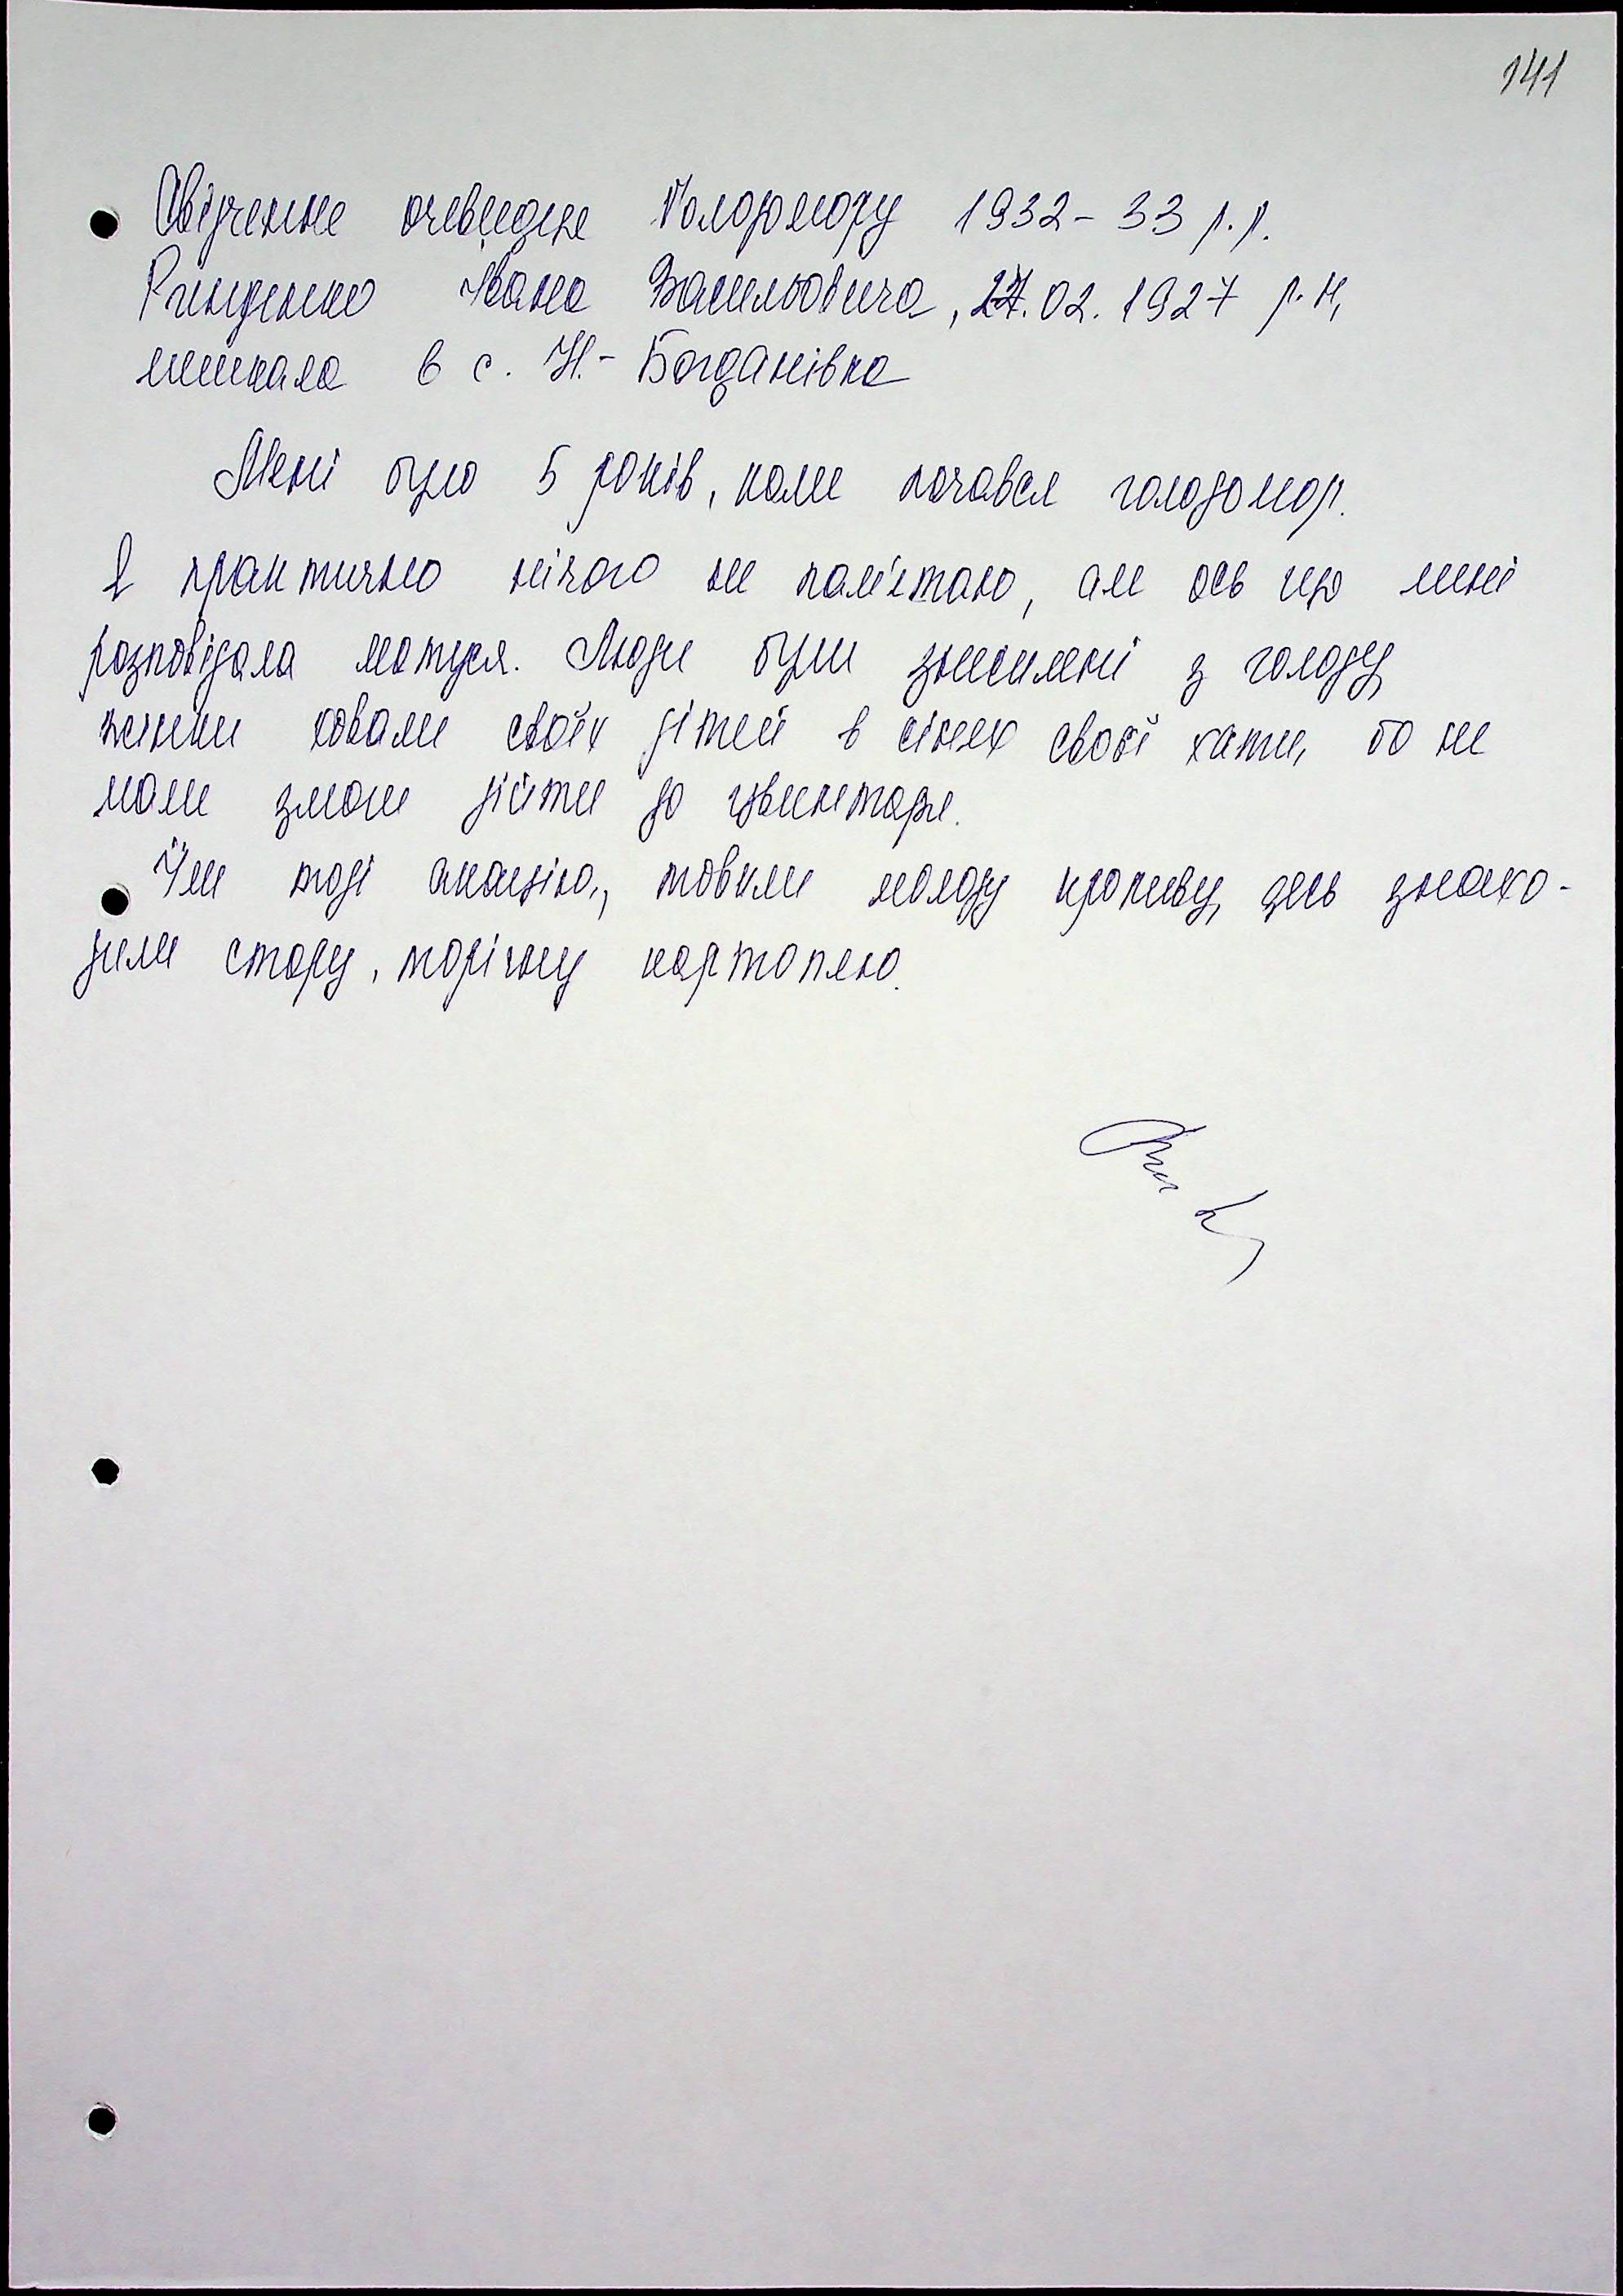 141
Свідчення очевидця Голодомору 1932-33 р.р.
Івана Васильовича, 27.02.1927 р.н,
мешкала в с. Н.-Богданівка
Мені було 5 років, коли почався голодомор.
Я практично нічого не пам'ятаю, але ось що мені
розповідала матуся. Люди були знесилені з голоду,
жінки ховали своїх дітей в сінях своєї хати, бо не
мали змоги дійти до цвинтаря.
Їли тоді акацію, товкли молоду кропиву, десь знахо-
дили стару, торічну картоплю.